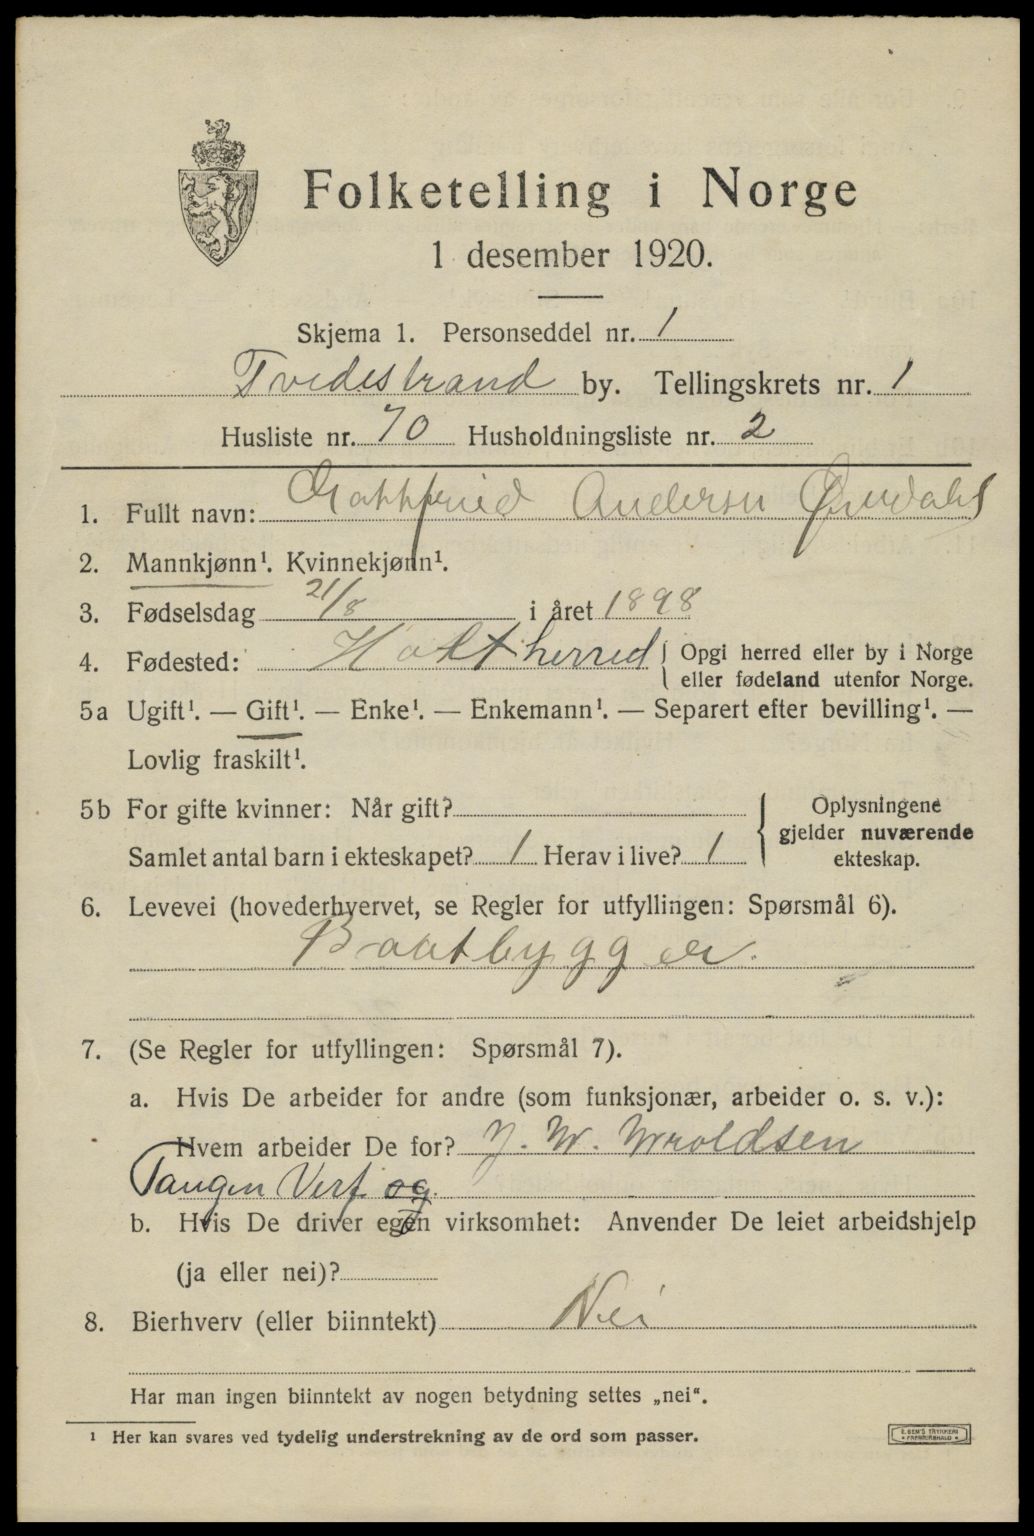 Folketelling i Norge
1 desember 1920.
Skjema 1. Personseddel nr. 1
Tvedestrand by. Tellingskrets nr. 1
Husliste nr. 70 Husholdningsliste nr. 2
1. Fullt navn: Gottfried Andersen
2. Mannkjønn¹. Kvinnekjønn¹.
3. Fødselsdag 21/8 i året 1898
4. Fødested: Holt herred { Opgi herred eller by i Norge
eller fødeland utenfor Norge.
5a Ugift¹. — Gift¹. — Enke¹. — Enkemann¹. — Separert efter bevilling¹. —
Lovlig fraskilt¹.
5b For gifte kvinner: Når gift? { Oplysningene
gjelder nuværende
Samlet antal barn i ekteskapet? 1 Herav i live? 1 ekteskap.
6. Levevei (hovederhvervet, se Regler for utfyllingen: Spørsmål 6).
Baatbygger.
7. (Se Regler for utfyllingen: Spørsmål 7).
a. Hvis De arbeider for andre (som funksjonær, arbeider o. s. v.):
Hvem arbeider De for? J. W. Wroldsen
Tangen Verf og.
b. Hvis De driver egen virksomhet: Anvender De leiet arbeidshjelp
(ja eller nei)?
8. Bierhverv (eller biinntekt) Nei
Har man ingen biinntekt av nogen betydning settes „nei“.
¹ Her kan svares ved tydelig understrekning av de ord som passer.
E. SEM'S TRYKKERI
• FREDRIKSHALD •